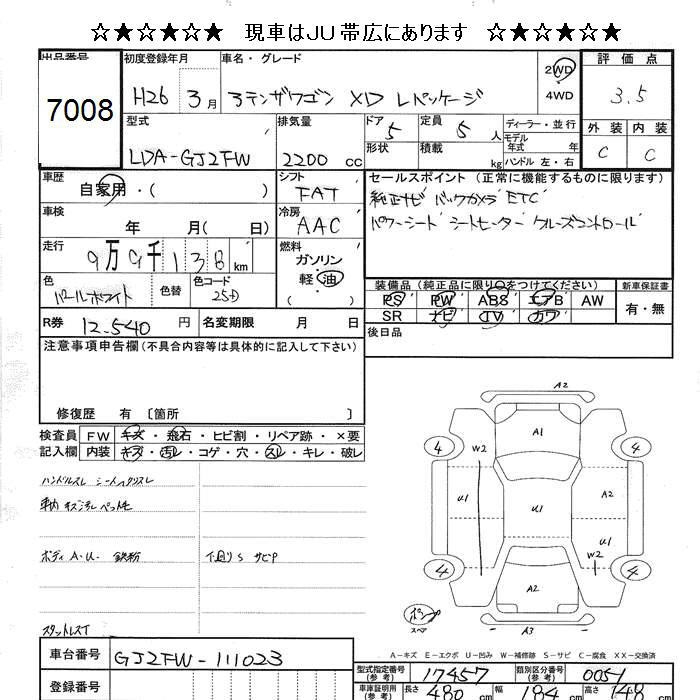 ☆★☆★☆★ 現車はJU帯広にあります ☆★☆★☆★
出品番号 7008
初度登録年月 H26 3月
車名・グレード アテンザワゴン XD Lパッケージ
2WD 4WD
評価点 3.5
外装 C 内装 C
型式 LDA-GJ2FW
排気量 2200 cc
ドア 5 定員 5 人
形状 積載 kg
ディーラー・並行
モデル年式 年
ハンドル 左・右
車歴 自家用・( )
シフト FAT
車検 年 月( 日)
冷房 AAC
走行 9万9千138 km
燃料 ガソリン 軽油 ( )
色 パールホワイト 色替 色コード 25D
セールスポイント (正常に機能するものに限ります)
純正ナビ バックカメラ ETC
パワーシート シートヒーター クルーズコントロール
装備品 (純正品に限り○をつけてください) 新車保証書
PS PW ABS エアB AW 有・無
SR ナビ TV カワ
R券 12,540 円 名変期限 月 日
後日品
注意事項申告欄 (不具合内容等は具体的に記入して下さい)
修復歴 有 〔箇所 〕
検査員 FW キズ・飛石・ヒビ割・リペア跡・×要
記入欄 内装 キズ・汚レ・コゲ・穴・スレ・キレ・破レ
ハンドルスレ シートヘタリスレ
車内 キズ汚レ ペット毛
ボディ A.U. 鉄粉 下廻りS サビP
スタッドレスT
A2
A1
4 W2 4
U1 U1 A2
U1
W2
4 A2 4
スペア A3
A-キズ E-エクボ U-凹み W-補修跡 S-サビ C-腐食 XX-交換済
車台番号 GJ2FW-111023
登録番号
型式指定番号(参考) 17457 類別区分番号(参考) 0051
車庫証明用(参考) 長さ 480 cm 幅 184 cm 高さ 148 cm